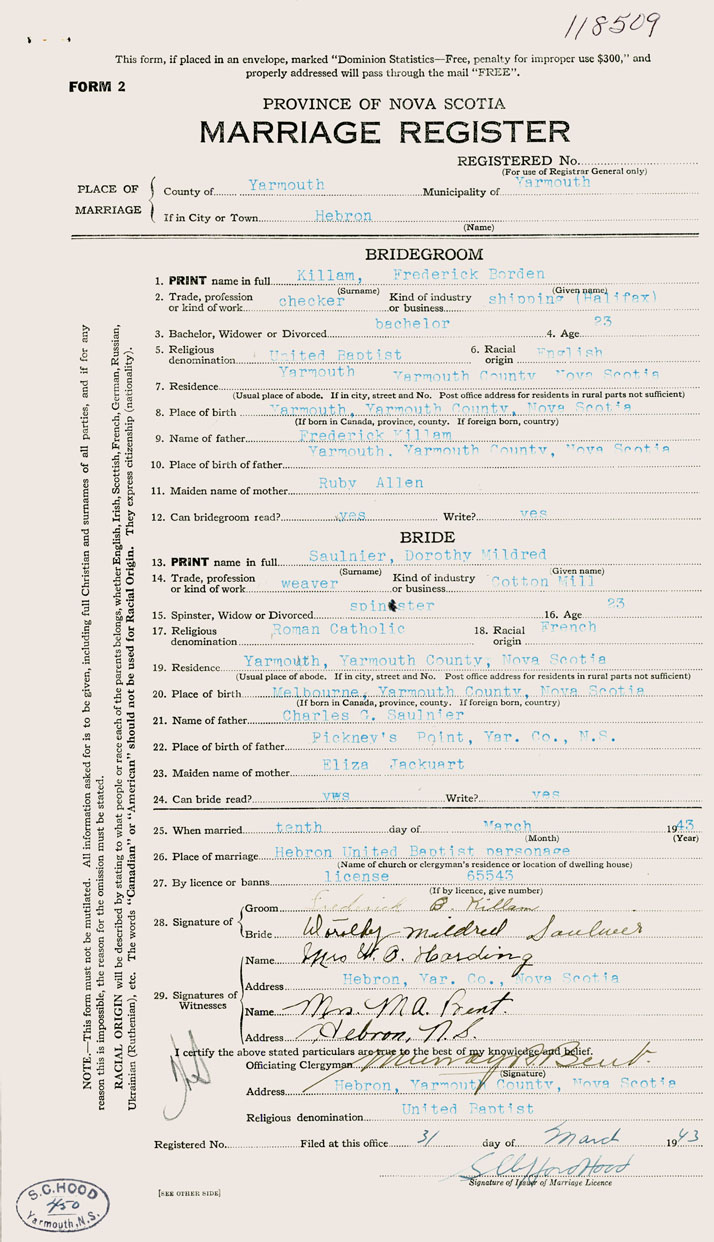 118509
This form, if placed in an envelope, marked "Dominion Statistics—Free, penalty for improper use $300," and
properly addressed will pass through the mail "FREE".
FORM 2
PROVINCE OF NOVA SCOTIA
MARRIAGE REGISTER
REGISTERED No.
(For use of Registrar General only)
PLACE OF MARRIAGE
County of Yarmouth Municipality of Yarmouth
If in City or Town Hebron
(Name)
BRIDEGROOM
1. PRINT name in full Killam, Frederick Borden
(Surname) (Given name)
2. Trade, profession or kind of work checker Kind of industry or business shipping (Halifax)
3. Bachelor, Widower or Divorced bachelor 4. Age 23
5. Religious denomination United Baptist 6. Racial origin English
7. Residence Yarmouth Yarmouth County Nova Scotia
(Usual place of abode. If in city, street and No. Post office address for residents in rural parts not sufficient)
8. Place of birth Yarmouth, Yarmouth County, Nova Scotia
(If born in Canada, province, county. If foreign born, country)
9. Name of father Frederick Killam
10. Place of birth of father Yarmouth, Yarmouth County, Nova Scotia
11. Maiden name of mother Ruby Allen
12. Can bridegroom read? yes Write? yes
BRIDE
13. PRINT name in full Saulnier, Dorothy Mildred
(Surname) (Given name)
14. Trade, profession or kind of work weaver Kind of industry or business Cotton Mill
15. Spinster, Widow or Divorced spinster 16. Age 23
17. Religious denomination Roman Catholic 18. Racial origin French
19. Residence Yarmouth, Yarmouth County, Nova Scotia
(Usual place of abode. If in city, street and No. Post office address for residents in rural parts not sufficient)
20. Place of birth Melbourne, Yarmouth County, Nova Scotia
(If born in Canada, province, county. If foreign born, country)
21. Name of father Charles G. Saulnier
22. Place of birth of father Pickney's Point, Yar. Co., N.S.
23. Maiden name of mother Eliza Jackuart
24. Can bride read? yws Write? yes
25. When married tenth day of March 1943
(Month) (Year)
26. Place of marriage Hebron United Baptist parsonage
(Name of church or clergyman's residence or location of dwelling house)
27. By licence or banns license 65543
(If by licence, give number)
28. Signature of
Groom Frederick B. Killam
Bride Dorothy Mildred Saulnier
29. Signatures of Witnesses
Name Mrs W. O. Harding
Address Hebron, Yar. Co., Nova Scotia
Name Mrs. M.A. Brent.
Address Hebron, N.S.
I certify the above stated particulars are true to the best of my knowledge and belief.
Officiating Clergyman Murray Brent.
(Signature)
Address Hebron, Yarmouth County, Nova Scotia
Religious denomination United Baptist
Registered No. Filed at this office 31 day of March 1943
S Clifford Hood
Signature of Issuer of Marriage Licence
[SEE OTHER SIDE]
S.C. HOOD
450
Yarmouth, N.S.
NOTE.—This form must not be mutilated. All information asked for is to be given, including full Christian and surnames of all parties, and if for any
reason this is impossible, the reason for the omission must be stated.
RACIAL ORIGIN will be described by stating to what people or race each of the parents belongs, whether English, Irish, Scottish, French, German, Russian,
Ukrainian (Ruthenian), etc. The words "Canadian" or "American" should not be used for Racial Origin. They express citizenship (nationality).